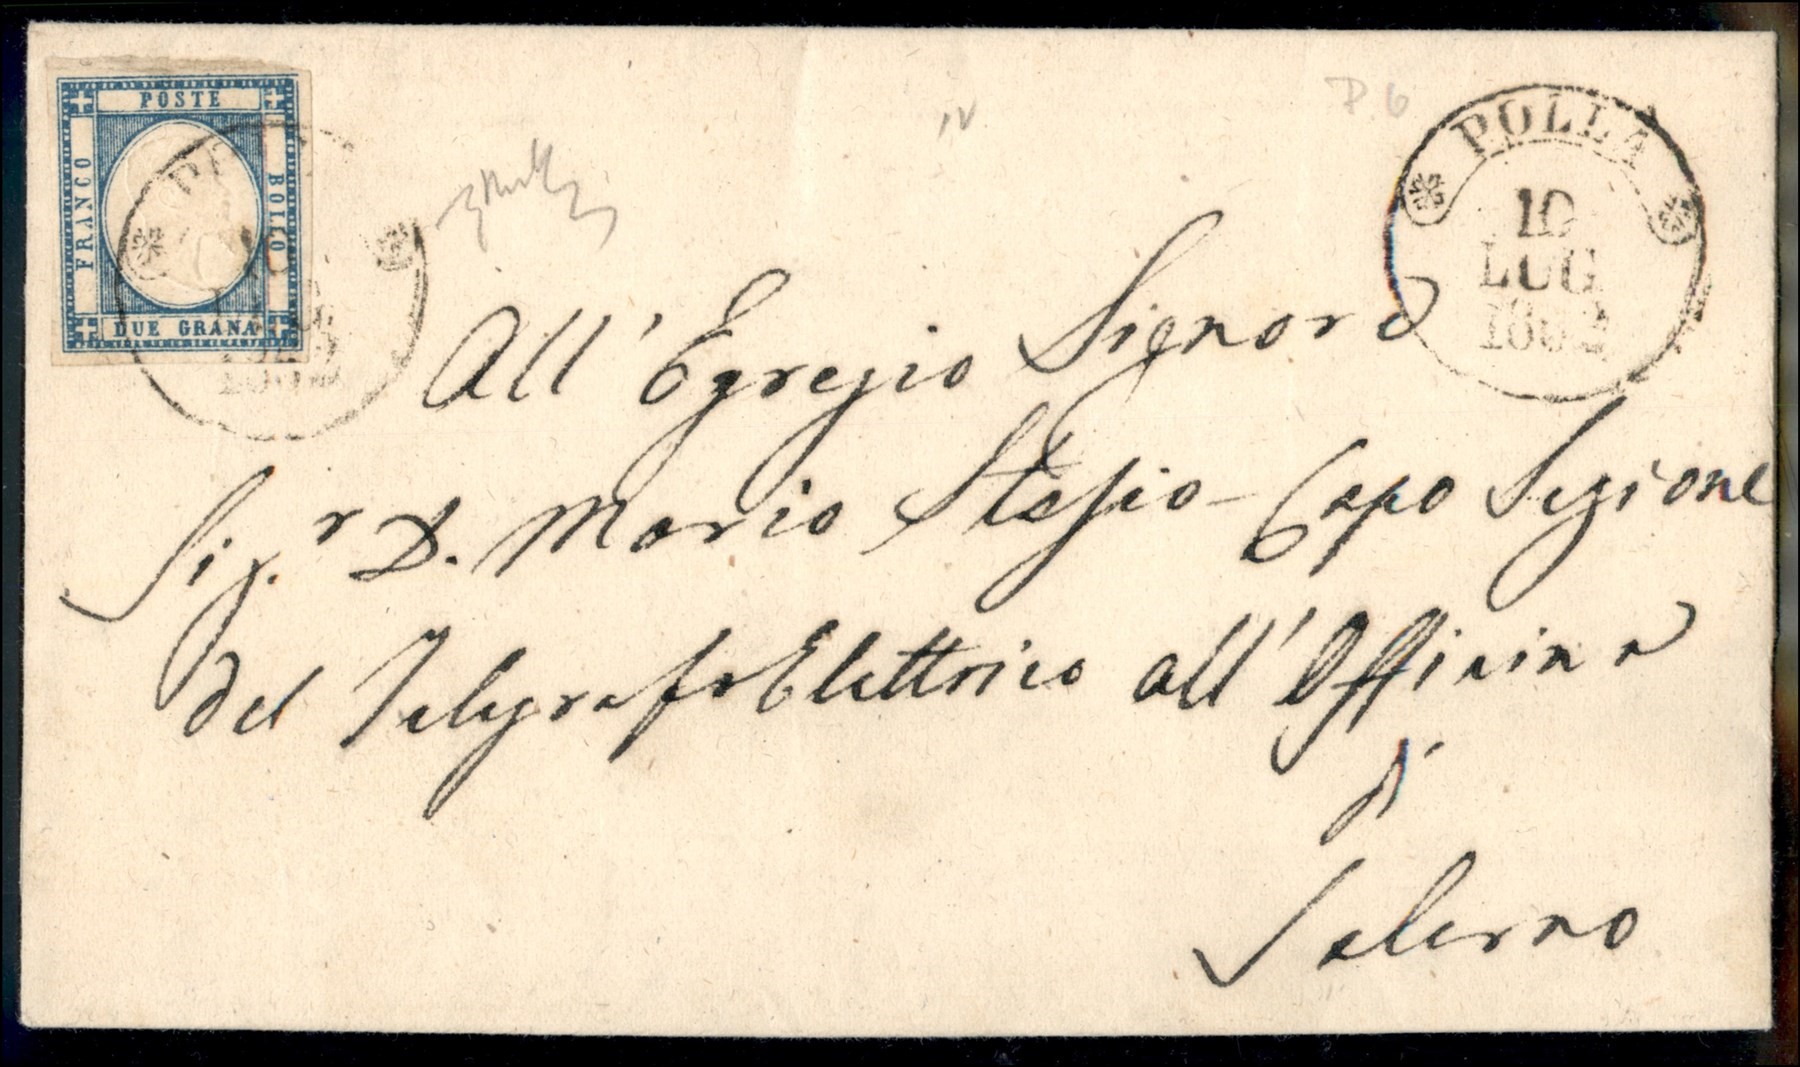 POSTE
FRANCO
BOLLO
DUE GRANA
P. 6
POLLA
10
LUG
1862
All' Egregio Signore
Sig.r D. Mario Stasio - Capo Sezione
del Telegrafo Elettrico all' Officina
di
Salerno